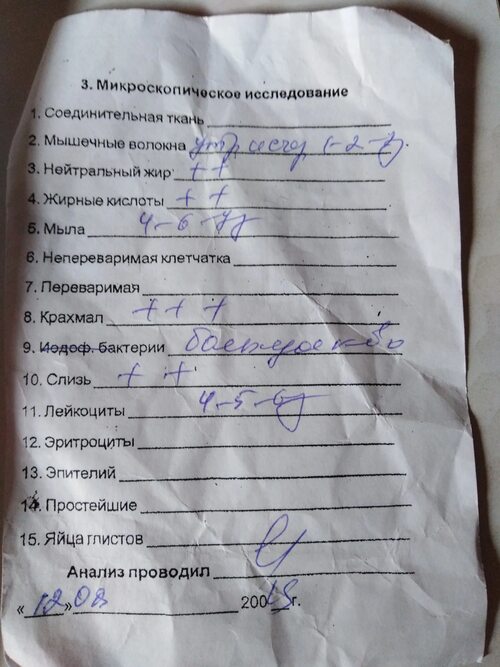 3. Микроскопическое исследование
1. Соединительная ткань
2. Мышечные волокна 1-2-
3. Нейтральный жир + +
4. Жирные кислоты + +
5. Мыла 4-6-
6. Непереваримая клетчатка
7. Переваримая
8. Крахмал + + +
9. Иодоф. бактерии большое к-во
10. Слизь + +
11. Лейкоциты 4-5-6
12. Эритроциты
13. Эпителий
14. Простейшие
15. Яйца глистов
Анализ проводил
«12» 02 200 г.